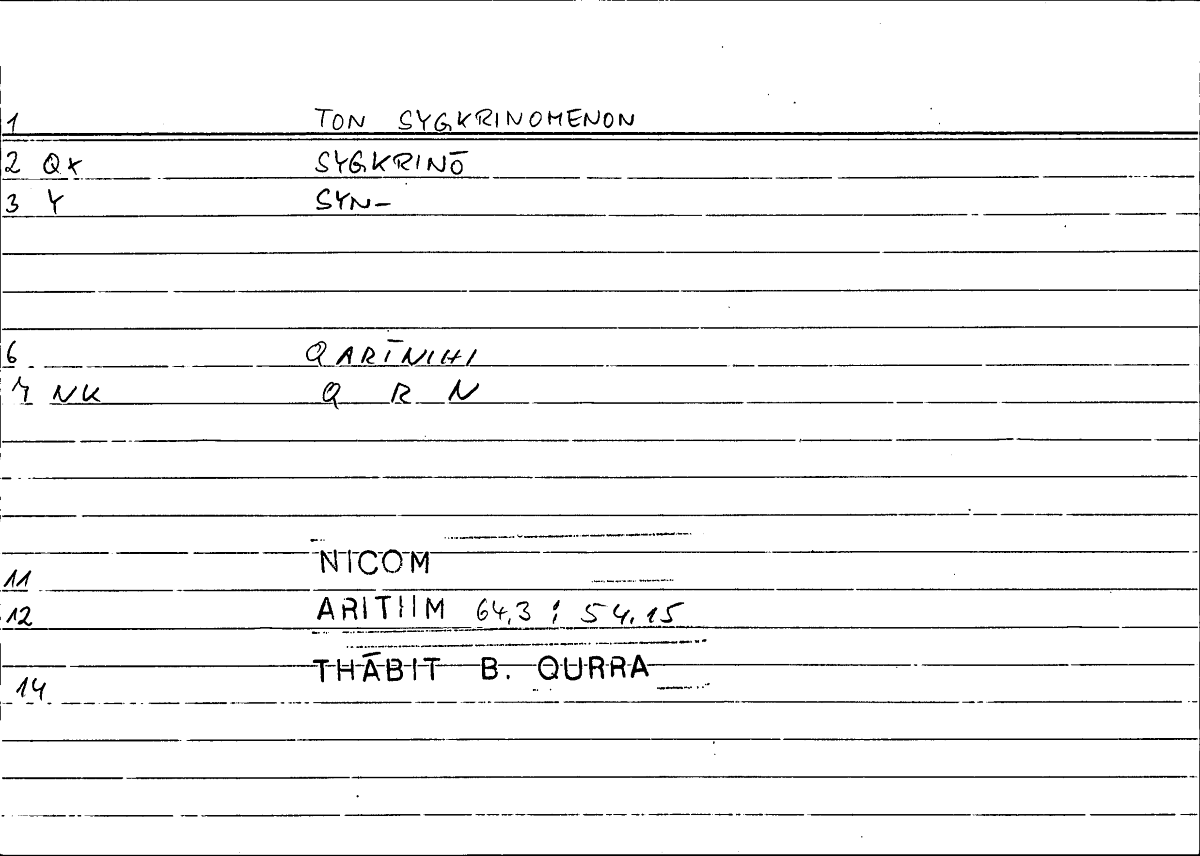 1 TON SYGKRINOMENON
2 QX SYGKRINŌ
3 Y SYN-
6 QARĪNIHI
7 NK Q R N
11 NICOM
12 ARITHM 64,3 ; 54.15
14 THĀBIT B. QURRA